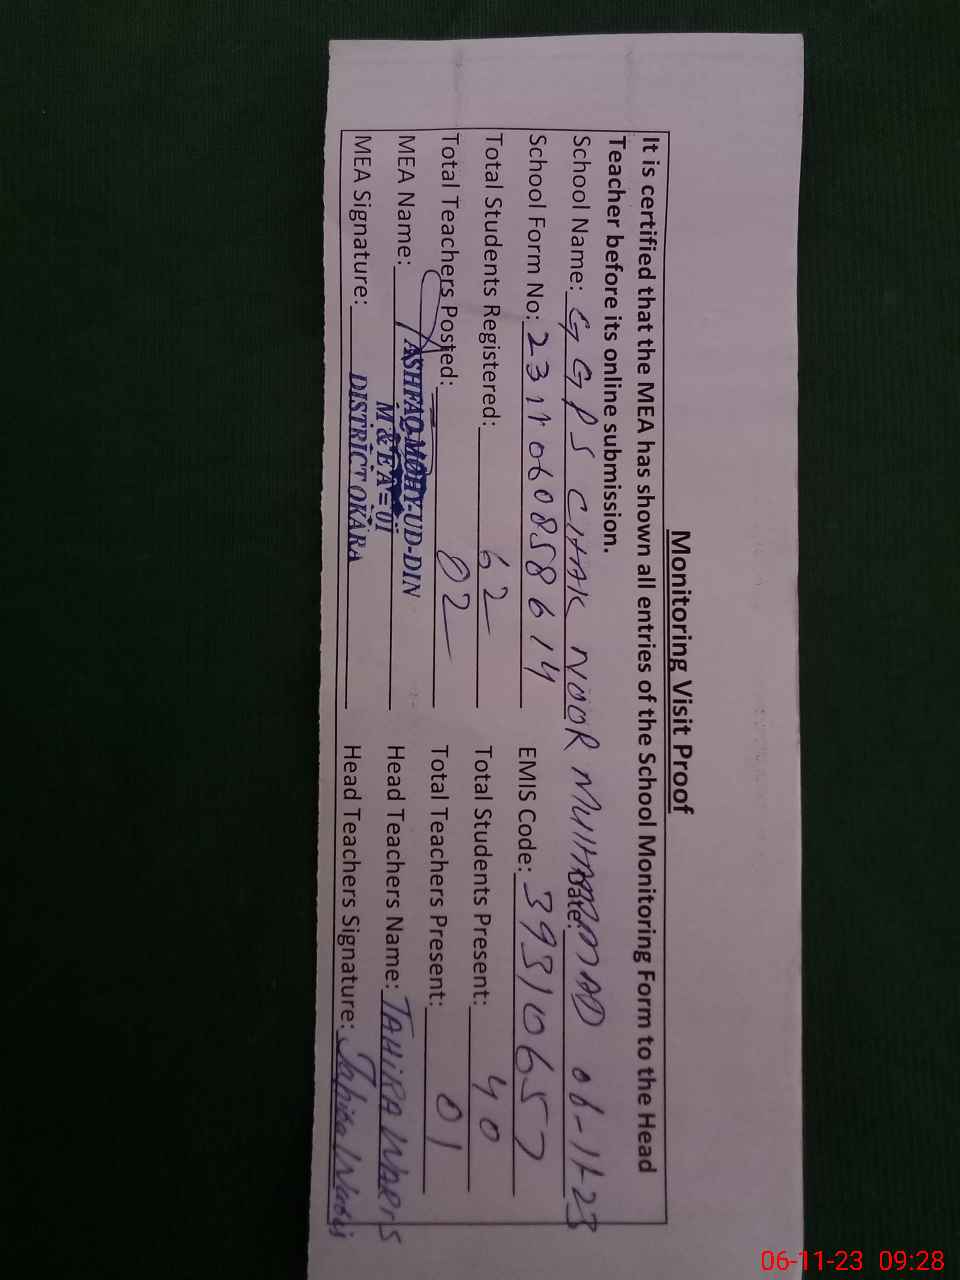 Monitoring Visit Proof
It is certified that the MEA has shown all entries of the School Monitoring Form to the Head
Teacher before its online submission.
School Name: GGPS CHAK NOOR MUHAMMAD Date: 06-11-23
School Form No: 2311060858614 EMIS Code: 39310657
Total Students Registered: 62 Total Students Present: 40
Total Teachers Posted: 02 Total Teachers Present: 01
MEA Name: ASHFAQ MOHY-UD-DIN Head Teachers Name: TAHIRA WARIS
M & E A = 01
MEA Signature: DISTRICT OKARA Head Teachers Signature: Tahira Waris
06-11-23 09:28